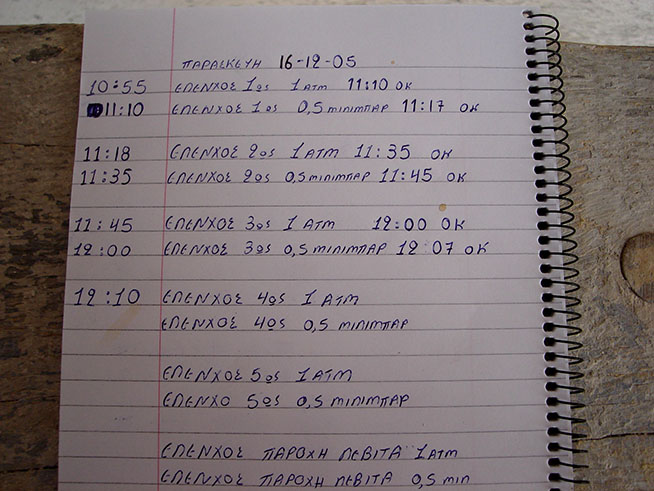 ΠΑΡΑΣΚΕΥΗ 16-12-05
10:55 ΕΛΕΝΧΟΣ 1ος 1 ΑΤΜ 11:10 ΟΚ
11:10 ΕΛΕΝΧΟΣ 1ος 0,5 ΜΙΛΙΜΠΑΡ 11:17 ΟΚ
11:18 ΕΛΕΝΧΟΣ 2ος 1 ΑΤΜ 11:35 ΟΚ
11:35 ΕΛΕΝΧΟΣ 2ος 0,5 ΜΙΛΙΜΠΑΡ 11:45 ΟΚ
11:45 ΕΛΕΝΧΟΣ 3ος 1 ΑΤΜ 12:00 ΟΚ
12:00 ΕΛΕΝΧΟΣ 3ος 0,5 ΜΙΛΙΜΠΑΡ 12:07 ΟΚ
12:10 ΕΛΕΝΧΟΣ 4ος 1 ΑΤΜ
ΕΛΕΝΧΟΣ 4ος 0,5 ΜΙΛΙΜΠΑΡ
ΕΛΕΝΧΟΣ 5ος 1 ΑΤΜ
ΕΛΕΝΧΟ 5ος 0,5 ΜΙΛΙΜΠΑΡ
ΕΛΕΝΧΟΣ ΠΑΡΟΧΗ ΛΕΒΙΤΑ 1 ΑΤΜ
ΕΛΕΝΧΟΣ ΠΑΡΟΧΗ ΛΕΒΙΤΑ 0,5 ΜΙΛ